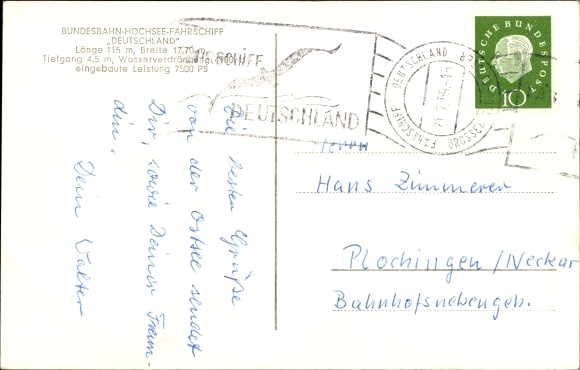 BUNDESBAHN-HOCHSEE-FÄHRSCHIFF
„DEUTSCHLAND"
Länge 115 m, Breite 17,70 m
Tiefgang 4,5 m, Wasserverdrängung
eingebaute Leistung 7500 PS
Die besten Grüße
von der Ostsee sendet
Dir, sowie Deiner Frau-
Dein Walter
FÄHRSCHIFF
DEUTSCHLAND
DEUTSCHLAND
FÄHRSCHIFF
DEUTSCHE BUNDESPOST
10
Herrn
Hans Zimmerer
Plochingen/Neckar
Bahnhofsnebengeb.